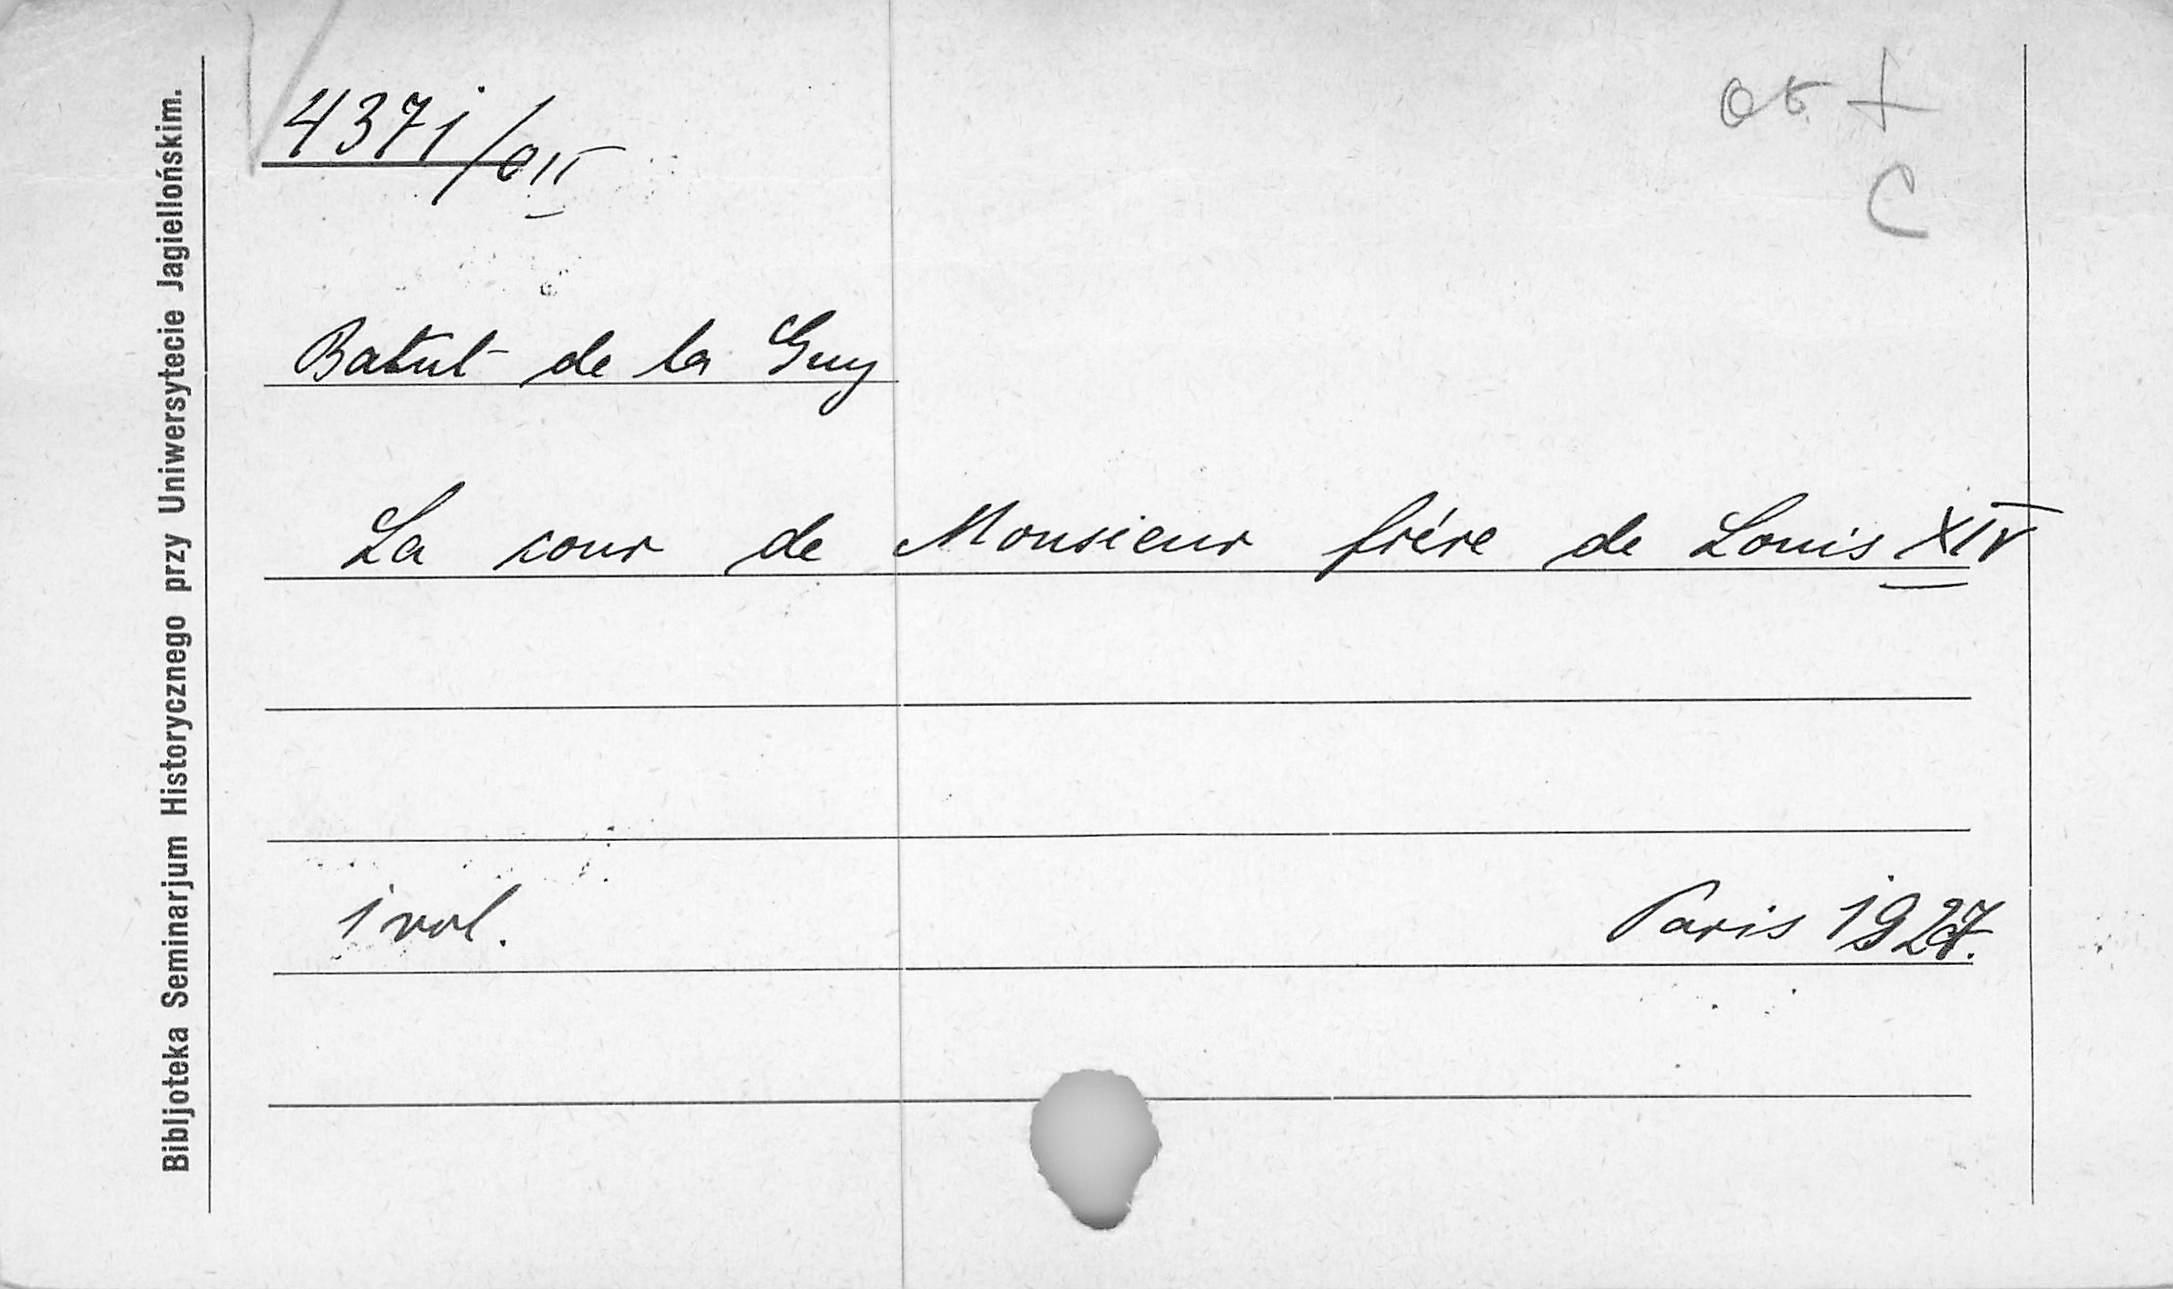 4371/oII
Batut de la Guy
La cour de Monsieur frére de Louis XIV
1 vol. Paris 1927.
C
Bibljoteka Seminarjum Historycznego przy Uniwersytecie Jagiellońskim.